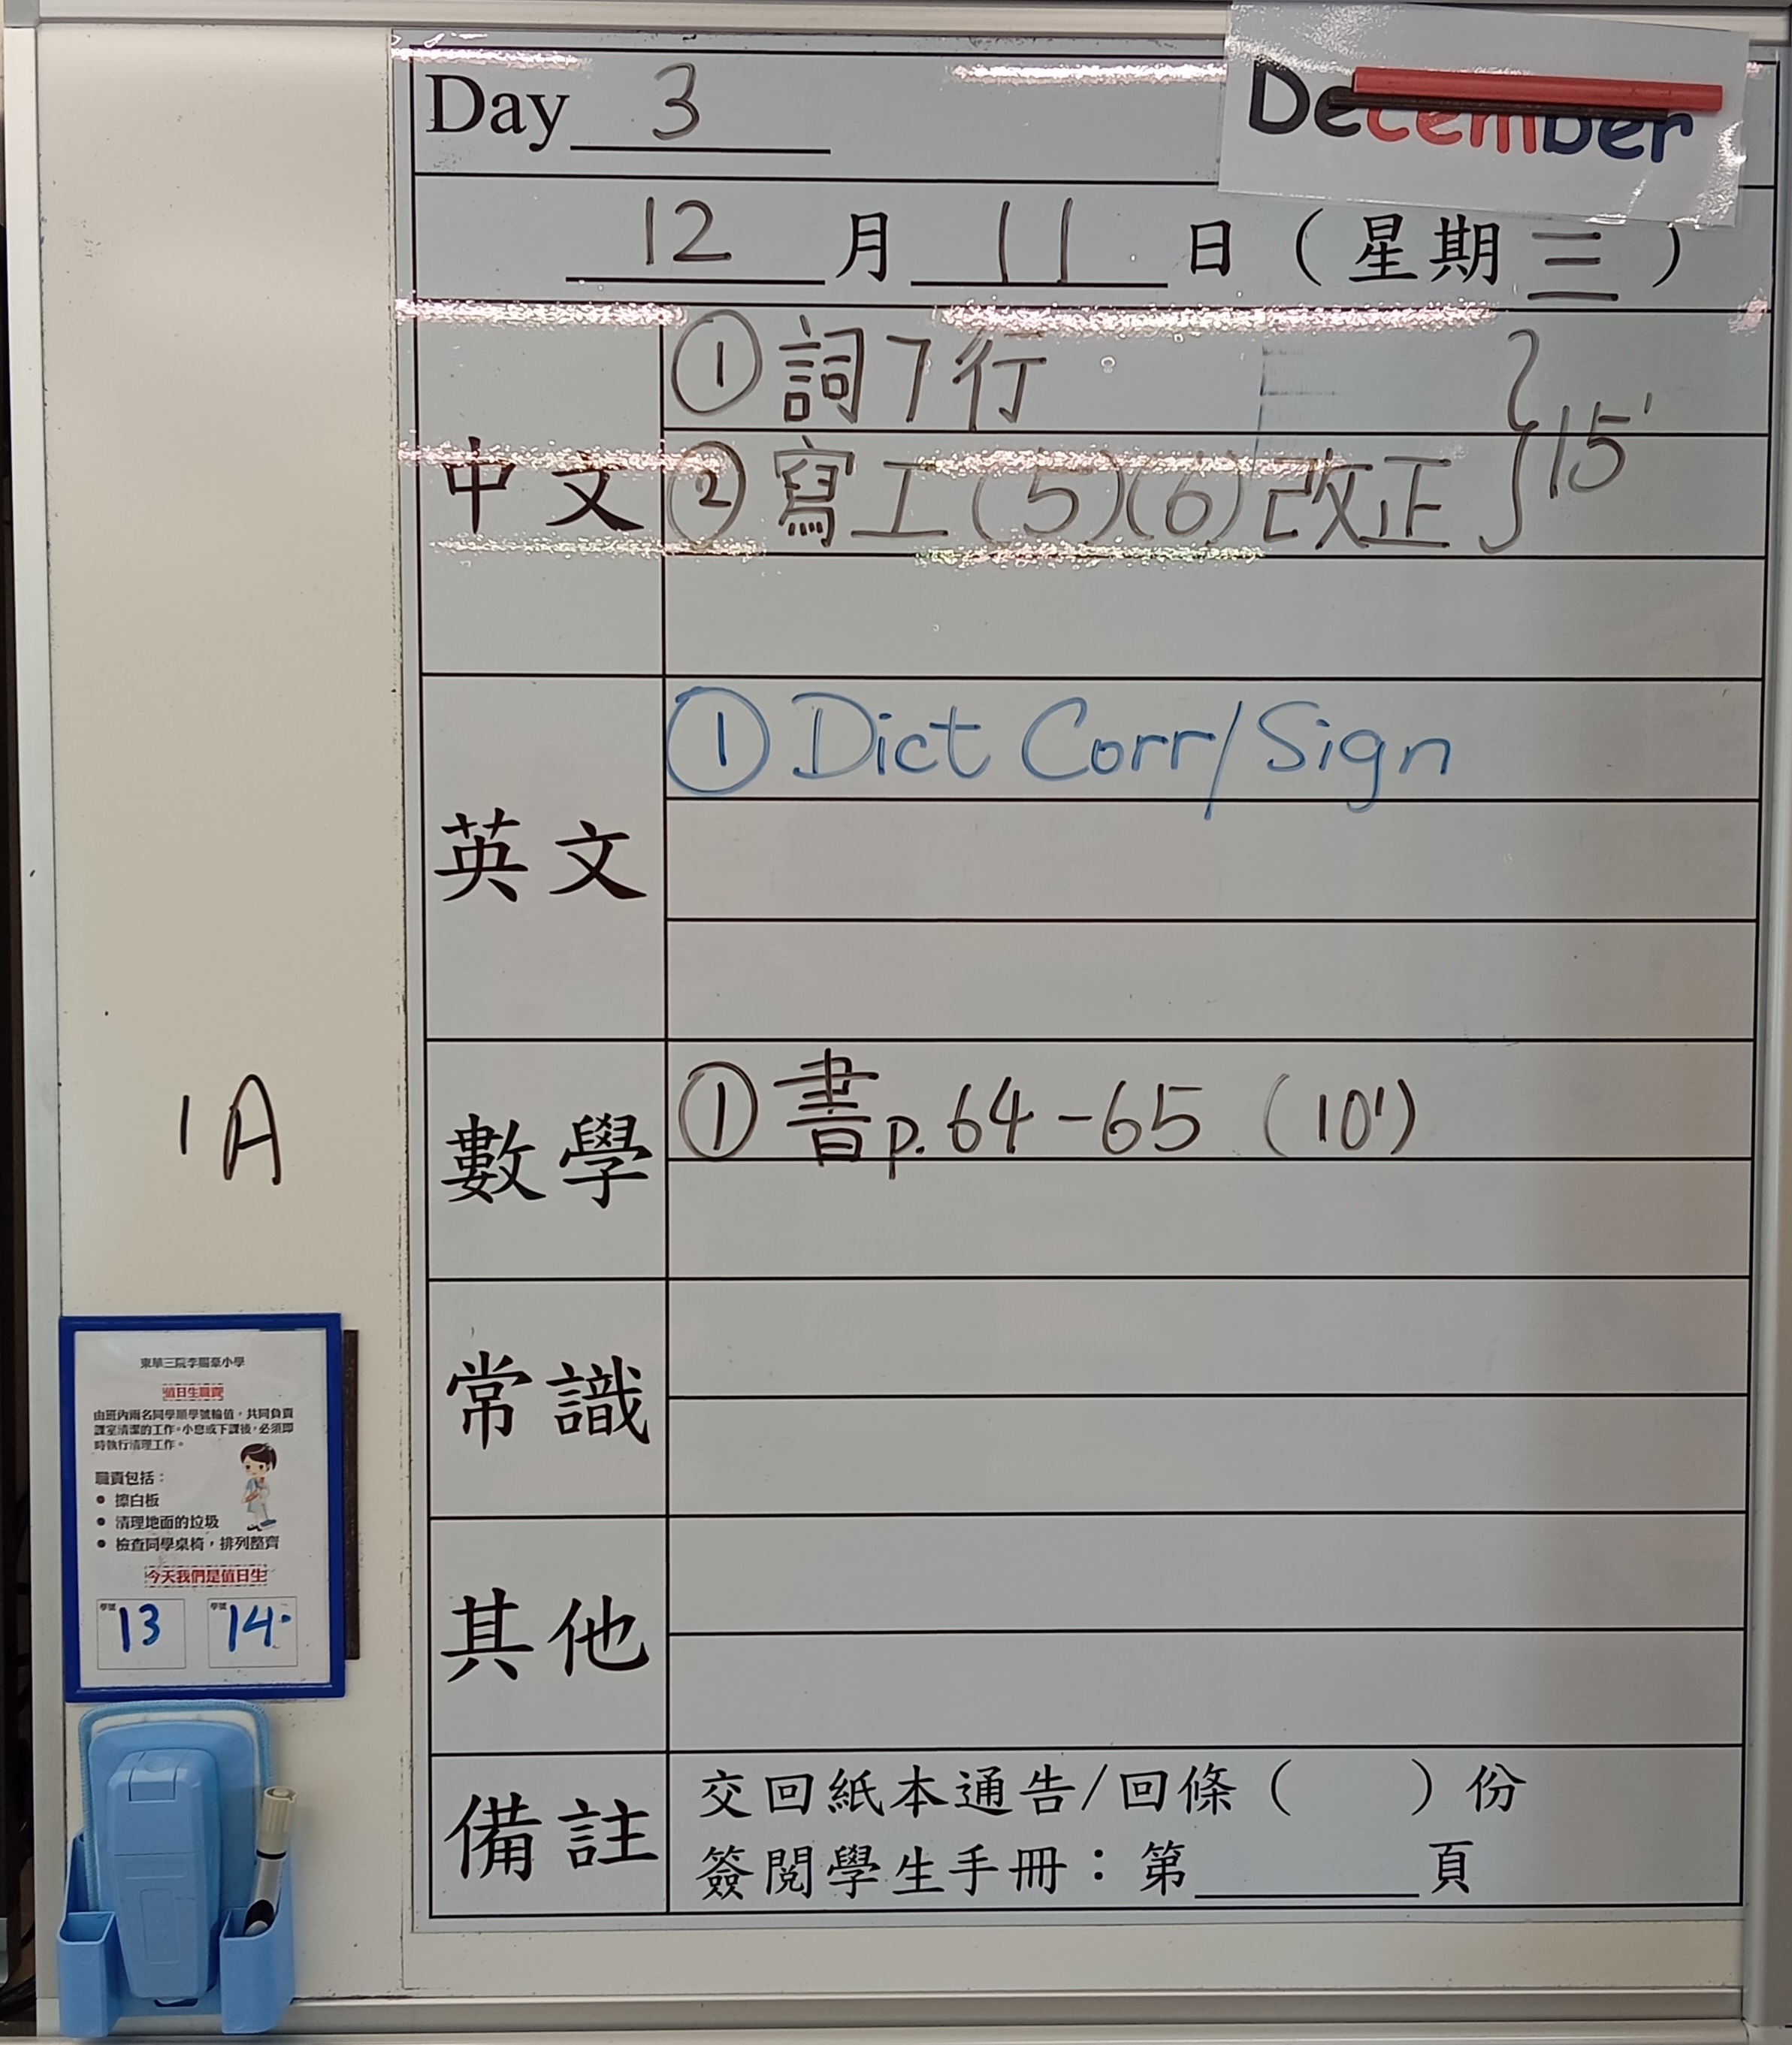 Day 3
December
12 月 11 日 (星期三)
中文
① 詞7行
② 寫工(5)(6)改正 } 15'
英文
① Dict Corr/Sign
數學
① 書p.64-65 (10')
常識
其他
備註
交回紙本通告/回條( )份
簽閱學生手冊:第______頁
1A
東華三院李賜豪小學
值日生職責
由班內兩名同學順學號輪值,共同負責
課室清潔的工作。小息或下課後,必須即
時執行清理工作。
職責包括:
• 擦白板
• 清理地面的垃圾
• 檢查同學桌椅,排列整齊
今天我們是值日生
學號 13 學號 14